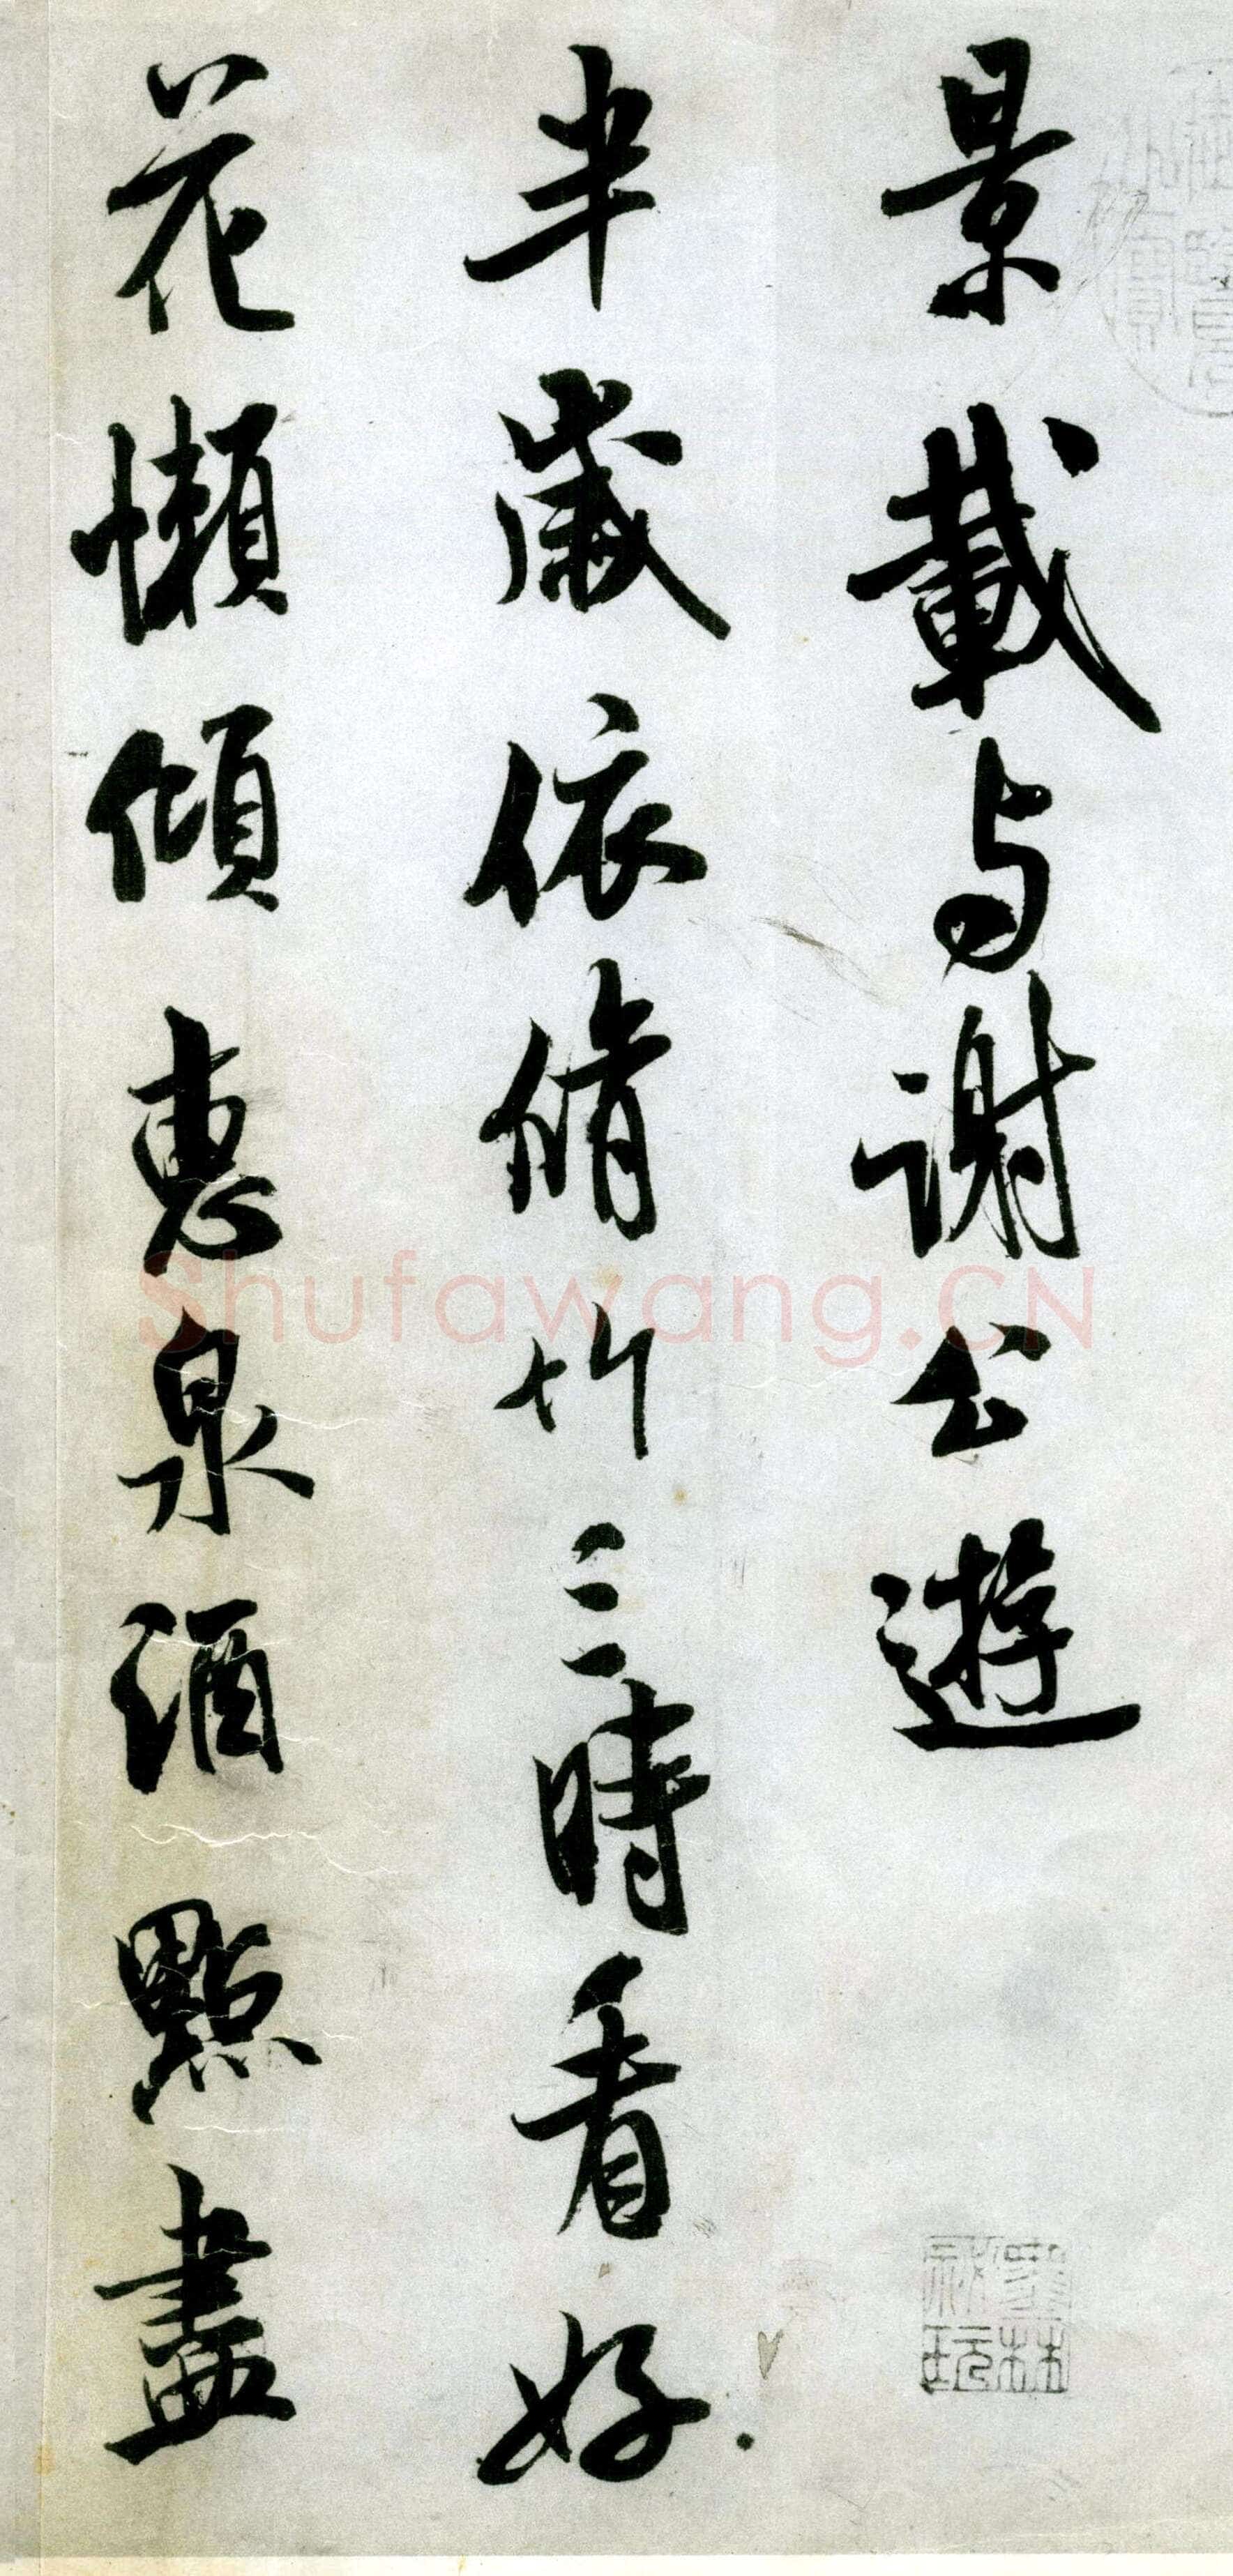 景載与謝公遊
半歲依脩竹三時看好
花懶傾惠泉酒點盡
Shufawang.CN